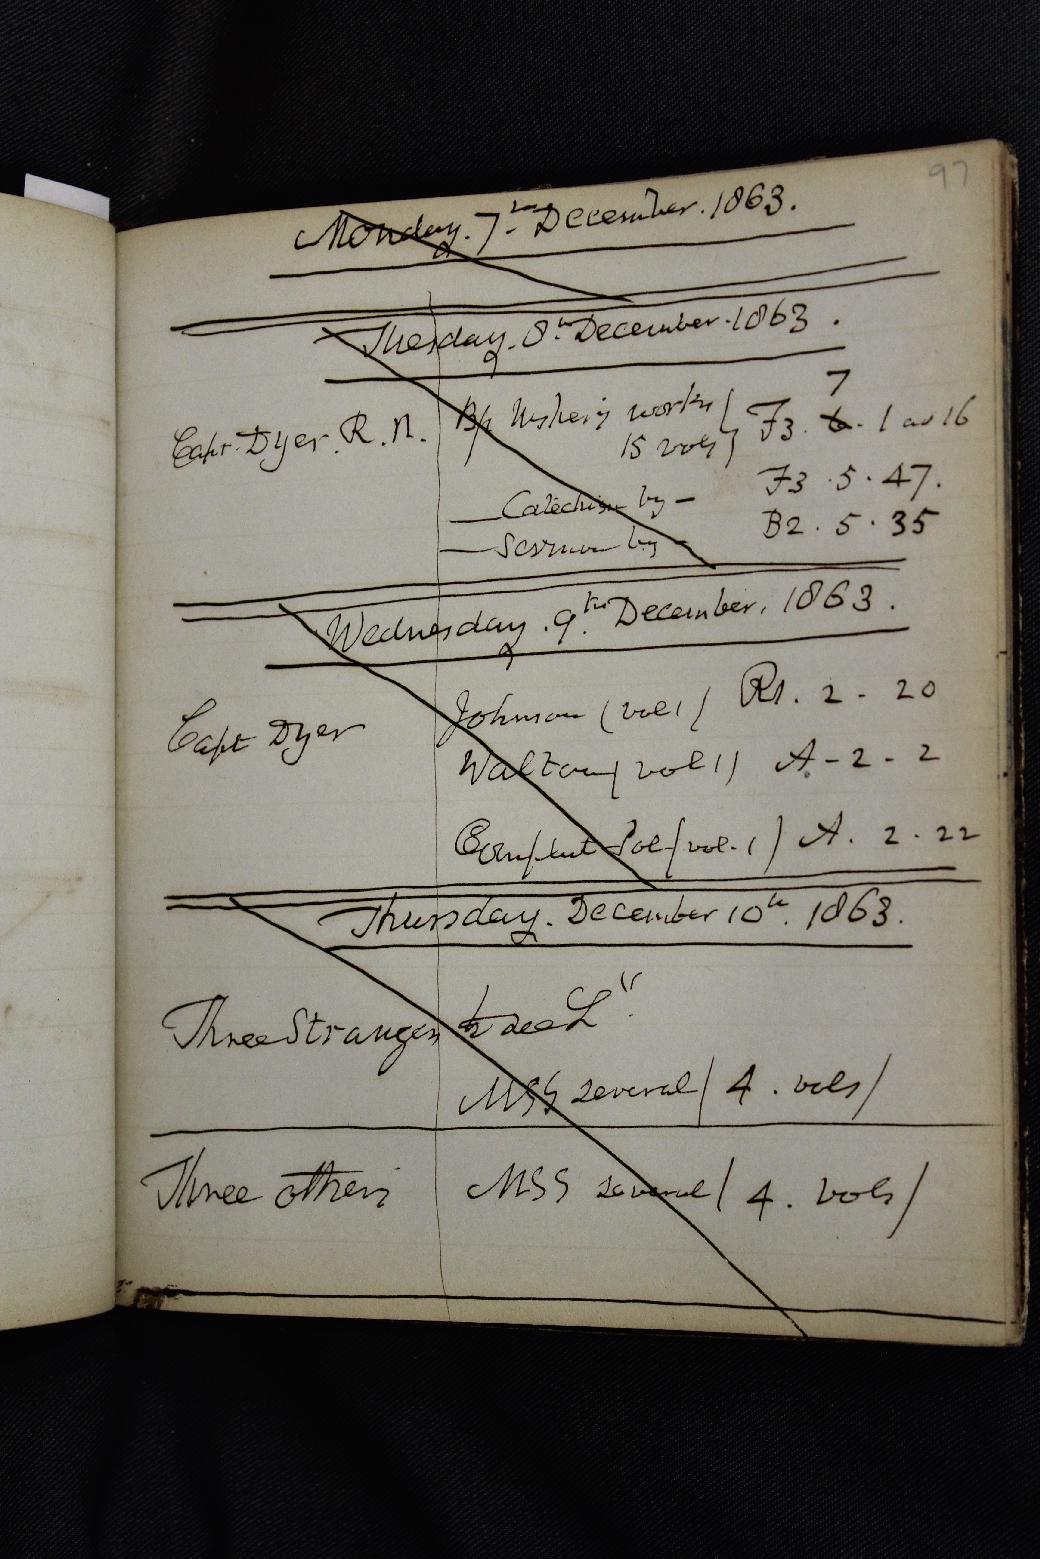 97
Monday. 7th December. 1863.
Tuesday. 8th December. 1863.
Capt. Dyer. R. N. Bp Usher's works / F3. 7 1 as 16
15 vols
— Catechism by — F3. 5. 47.
— Sermon by — B2. 5. 35
Wednesday. 9th. December. 1863.
Capt Dyer Johnson (vol 1) R1. 2 - 20
Walton (vol 1) A - 2 - 2
Complut Pol (vol. 1) A. 2 - 22
Thursday. December 10th. 1863.
Three Strangers to see
MSS several / 4. vols /
Three others MSS several / 4. vols /